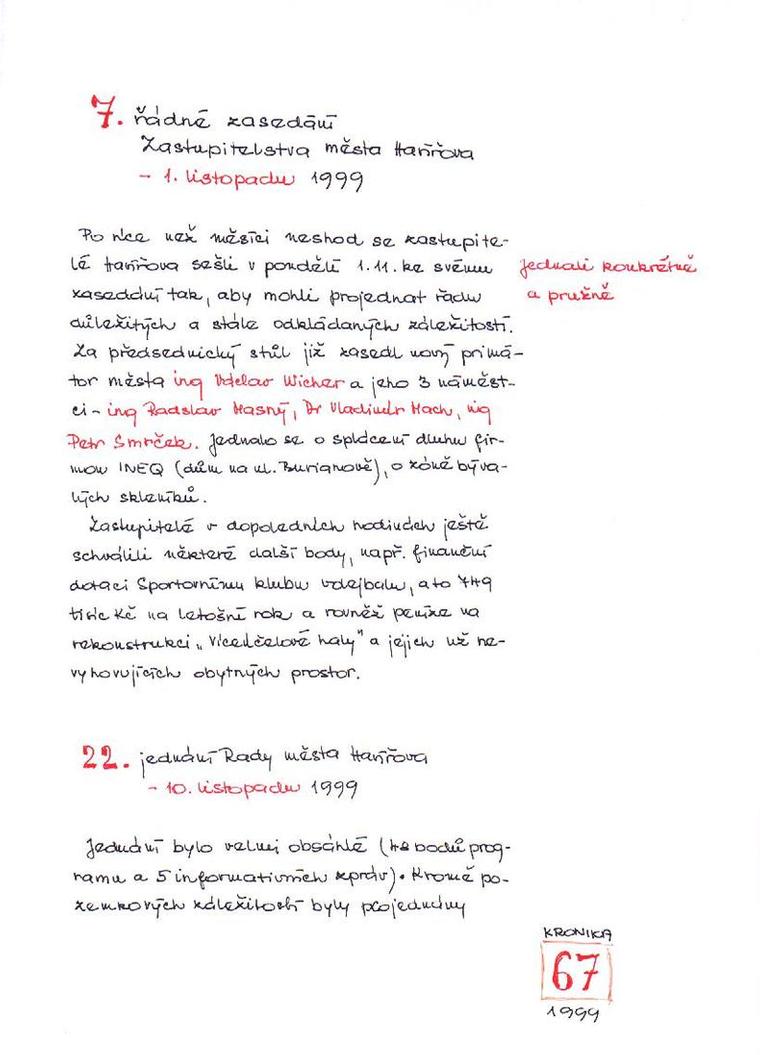 7. řádné zasedání
Zastupitelstva města Havířova
- 1. listopadu 1999
Po více než měsíci neshod se zastupite-
lé Havířova sešli v pondělí 1.11. ke svému
zasedání tak, aby mohli projednat řadu
důležitých a stále odkládaných záležitostí.
Za předsednický stůl již zasedl nový primá-
tor města ing Vdclav Wicher a jeho 3 náměst-
ci - ing Radslav Masný, Dr Vladimír Mach, ing
Petr Smrček. Jednalo se o splácení dluhu fir-
mou INEQ (dům na ul. Burianově), o zóně býva-
lých skleníků.
Zastupitelé v dopoledních hodinách ještě
schválili některé další body, např. finanční
dotaci Sportovnímu klubu volejbalu, a to 749
tisíc Kč na letošní rok a rovněž peníze na
rekonstrukci „Víceúčelové haly" a jejich už ne-
vyhovujících obytných prostor.
jednali konkrétně
a pružně
22. jednání Rady města Havířova
- 10. listopadu 1999
Jednání bylo velmi obsáhlé (48 bodů prog-
ramu a 5 informativních zpráv). Kromě po-
zemkových záležitostí byly projednány
KRONIKA
67
1999